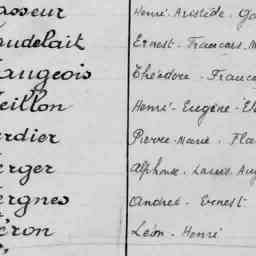 asseur Henri-Aristide-
audelait Ernest-François-
augeois Théodore-
eillon Henri-Eugène-
erdier Pierre-Marie-
erger Alphonse-Louis-
ergnes André-Ernest
éron Léon-Henri